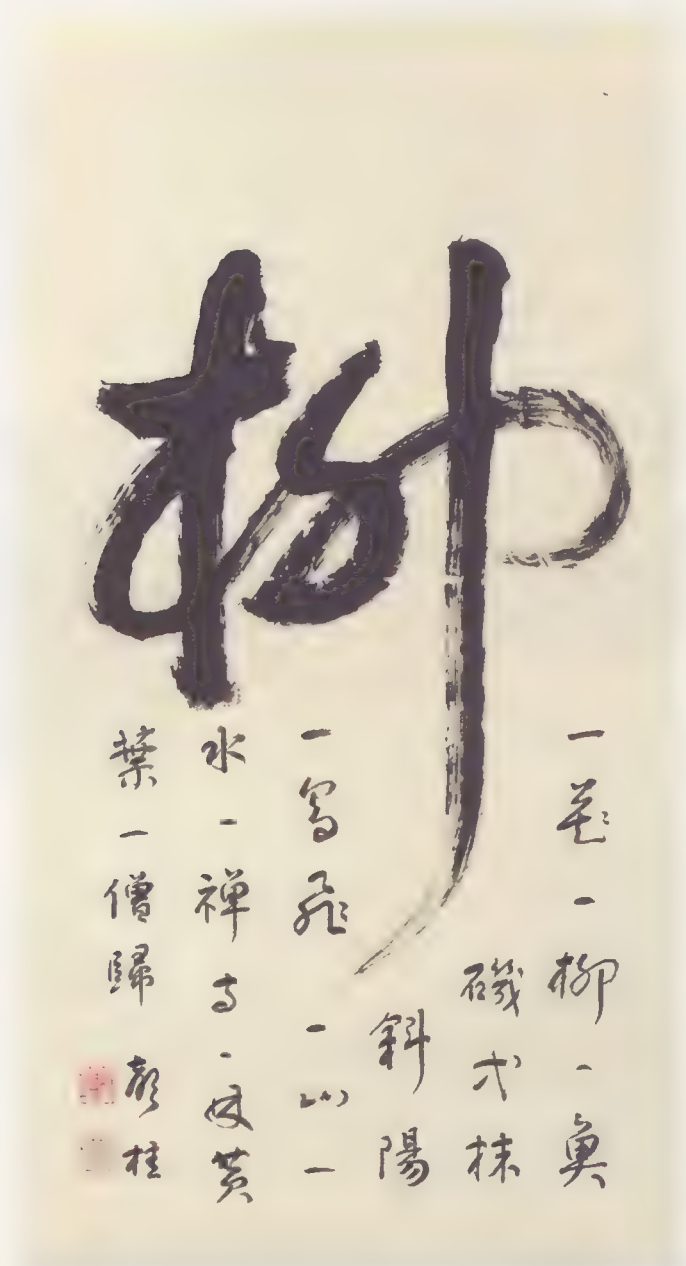 柳
一花一柳一魚
磯一抹
斜陽
一鳥飛一山一
水一禅寺一林黄
葉一僧歸 彭桂